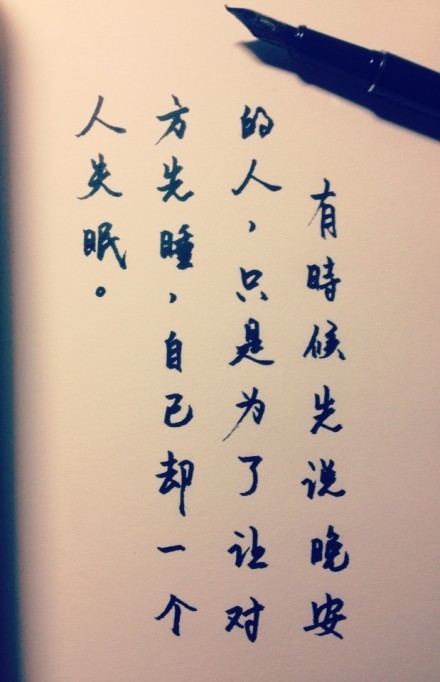 有時候先说晚安
的人，只是为了让对
方先睡，自己却一个
人失眠。